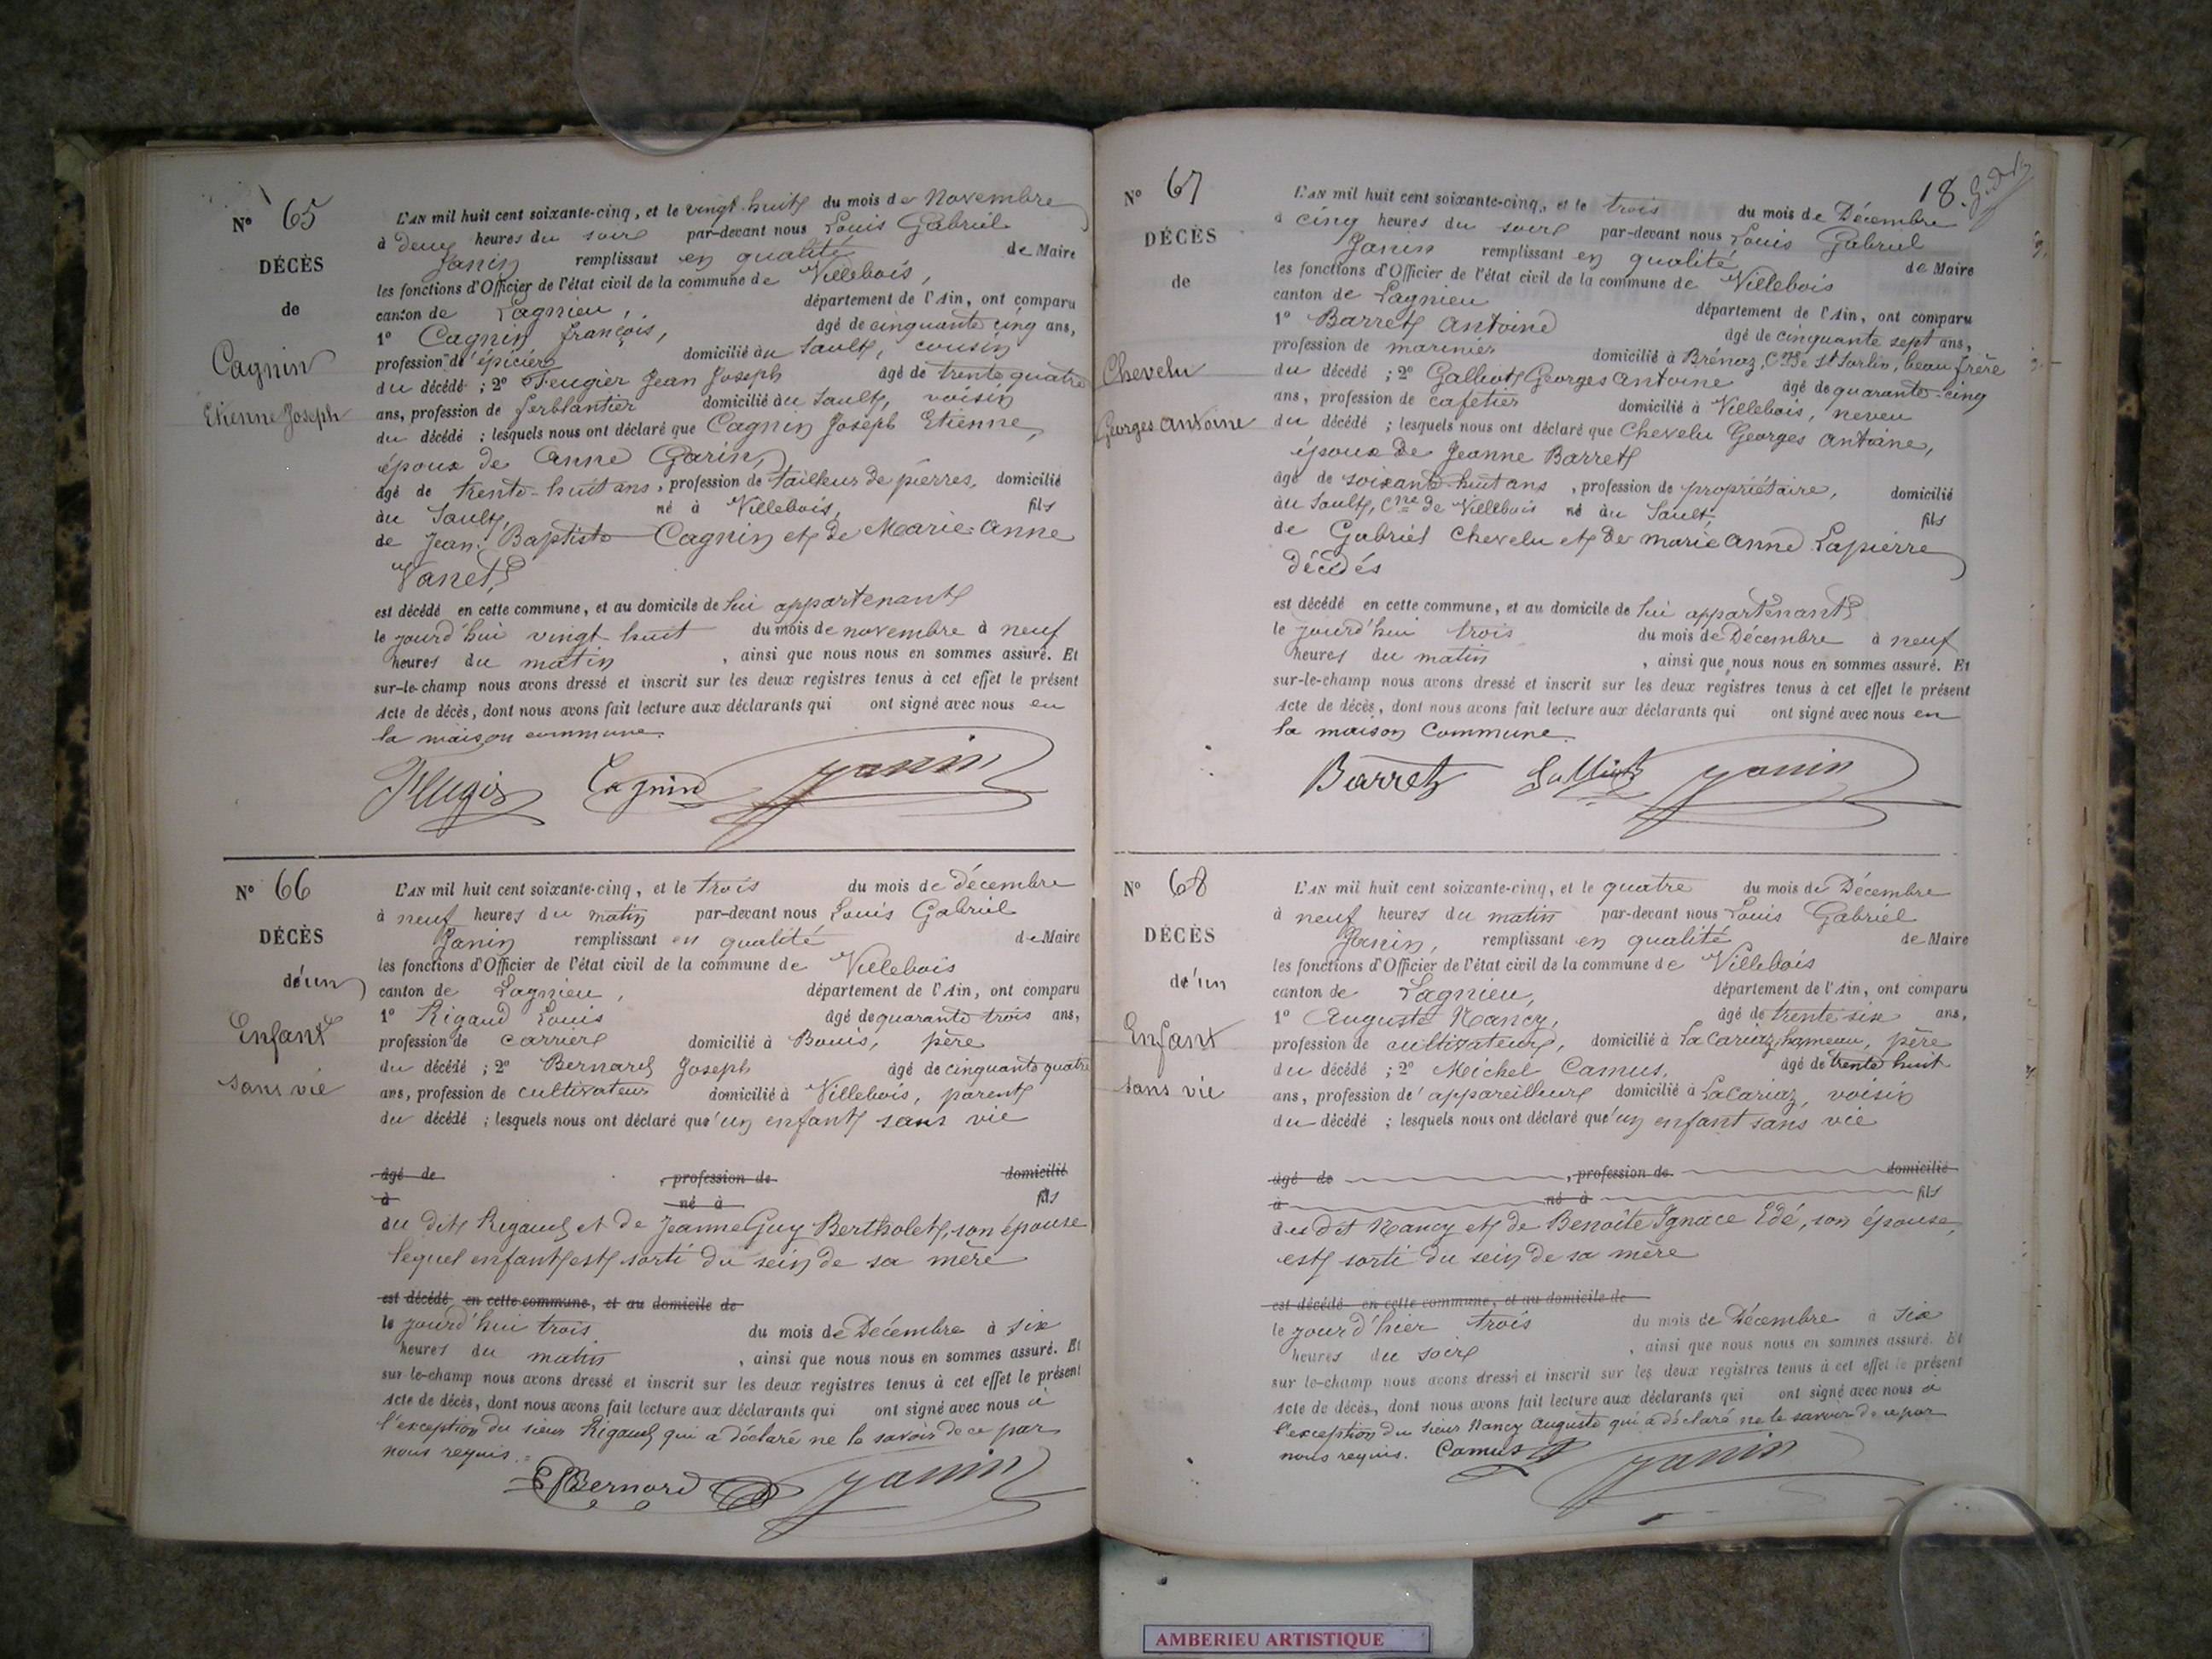 N° 65
DÉCÈS
de
Cagnin
Etienne Joseph
L'AN mil huit cent soixante-cinq, et le vingt-huit du mois de Novembre
à deux heures du soir par-devant nous Louis Gabriel
Janin remplissant en qualité de Maire
les fonctions d'Officier de l'état civil de la commune de Villebois,
canton de Lagnieu, département de l'Ain, ont comparu
1° Cagnin françois, âgé de cinquante cinq ans,
profession d'épicier domicilié au Sault, cousin
du décédé ; 2° Feugier Jean Joseph âgé de trente quatre
ans, profession de ferblantier domicilié au Sault, voisin
du décédé ; lesquels nous ont déclaré que Cagnin Joseph Etienne,
époux de Anne Garin,
âgé de trente-huit ans, profession de tailleur de pierres, domicilié
au Sault, né à Villebois, fils
de Jean Baptiste Cagnin et de Marie-Anne
Vanet,
est décédé en cette commune, et au domicile de lui appartenant
le jourd'hui vingt huit du mois de novembre à neuf
heures du matin, ainsi que nous nous en sommes assuré. Et
sur-le-champ nous avons dressé et inscrit sur les deux registres tenus à cet effet le présent
Acte de décès, dont nous avons fait lecture aux déclarants qui ont signé avec nous en
la maison commune.
Cagnin Janin
N° 66
DÉCÈS
d'un
Enfant
sans vie
L'AN mil huit cent soixante-cinq, et le trois du mois de décembre
à neuf heures du matin par-devant nous Louis Gabriel
Janin remplissant en qualité de Maire
les fonctions d'Officier de l'état civil de la commune de Villebois
canton de Lagnieu, département de l'Ain, ont comparu
1° Rigaud Louis âgé de quarante trois ans,
profession de carrier domicilié à Bouis, père
du décédé ; 2° Bernard Joseph âgé de cinquante quatre
ans, profession de cultivateur domicilié à Villebois, parent
du décédé ; lesquels nous ont déclaré qu'un enfant sans vie
âgé de , profession de domicilié
à né à fils
du dit Rigaud et de Jeanne Guy Bertholet, son épouse
lequel enfant est sorti du sein de sa mère
est décédé en cette commune, et au domicile de
le jourd'hui trois du mois de Décembre à six
heures du matin, ainsi que nous nous en sommes assuré. Et
sur-le-champ nous avons dressé et inscrit sur les deux registres tenus à cet effet le présent
Acte de décès, dont nous avons fait lecture aux déclarants qui ont signé avec nous à
l'exception du sieur Rigaud qui a déclaré ne le savoir de ce par
nous requis.
Bernard Janin
18.
N° 67
DÉCÈS
de
Chevelu
Georges Antoine
L'AN mil huit cent soixante-cinq, et le trois du mois de Décembre
à cinq heures du soir par-devant nous Louis Gabriel
Janin remplissant en qualité de Maire
les fonctions d'Officier de l'état civil de la commune de Villebois
canton de Lagnieu département de l'Ain, ont comparu
1° Barret Antoine âgé de cinquante sept ans,
profession de marinier domicilié à Brénaz, Cne de St Sorlin, beau frère
du décédé ; 2° Galliot Georges Antoine âgé de quarante-cinq
ans, profession de cafetier domicilié à Villebois, neveu
du décédé ; lesquels nous ont déclaré que Chevelu Georges Antoine,
époux de Jeanne Barret
âgé de soixante-huit ans, profession de propriétaire, domicilié
au Sault, Cne de Villebois né au Sault, fils
de Gabriel Chevelu et de Marie Anne Lapierre
décédés
est décédé en cette commune, et au domicile de lui appartenant
le jourd'hui trois du mois de Décembre à neuf
heures du matin, ainsi que nous nous en sommes assuré. Et
sur-le-champ nous avons dressé et inscrit sur les deux registres tenus à cet effet le présent
Acte de décès, dont nous avons fait lecture aux déclarants qui ont signé avec nous en
la maison Commune.
Barret Galliot Janin
N° 68
DÉCÈS
d'un
Enfant
sans vie
L'AN mil huit cent soixante-cinq, et le quatre du mois de Décembre
à neuf heures du matin par-devant nous Louis Gabriel
Janin, remplissant en qualité de Maire
les fonctions d'Officier de l'état civil de la commune de Villebois
canton de Lagnieu, département de l'Ain, ont comparu
1° Auguste Nancy, âgé de trente six ans,
profession de cultivateur, domicilié à La Cariaz hameau, père
du décédé ; 2° Michel Camus, âgé de trente huit
ans, profession d'appareilleur domicilié à LaCariaz, voisin
du décédé ; lesquels nous ont déclaré qu'un enfant sans vie
âgé de , profession de domicilié
à né à fils
du dit Nancy et de Benoîte Ignace Edé, son épouse,
est sorti du sein de sa mère
est décédé en cette commune, et au domicile de
le jour d'hier trois du mois de Décembre à six
heures du soir, ainsi que nous nous en sommes assuré. Et
sur-le-champ nous avons dressé et inscrit sur les deux registres tenus à cet effet le présent
Acte de décès, dont nous avons fait lecture aux déclarants qui ont signé avec nous à
l'exception du sieur Nancy Auguste qui a déclaré ne le savoir de ce par
nous requis. Camus Janin
AMBERIEU ARTISTIQUE